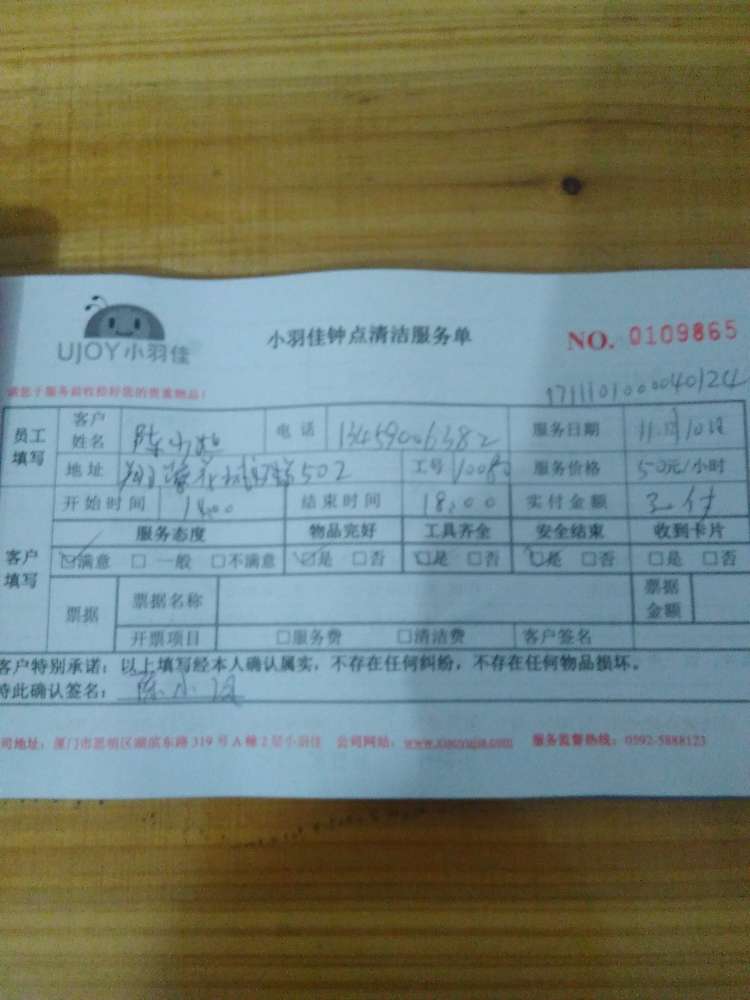 UJOY小羽佳
小羽佳钟点清洁服务单
NO. 0109865
请您于服务前收拾好您的贵重物品!
1711101000040124
员工填写 客户姓名 陈小姐 电话 13459006382 服务日期 11月10日
地址 502 工号 10080 服务价格 50元/小时
开始时间 14:00 结束时间 18:00 实付金额
客户填写 服务态度 物品完好 工具齐全 安全结束 收到卡片
☑满意 □一般 □不满意 ☑是 □否 ☑是 □否 ☑是 □否 □是 □否
票据 票据名称 票据金额
开票项目 □服务费 □清洁费 客户签名
客户特别承诺:以上填写经本人确认属实,不存在任何纠纷,不存在任何物品损坏。
特此确认签名:
司地址:厦门市思明区湖滨东路319号A幢2层小羽佳 公司网站: 服务监督热线:0592-5888123